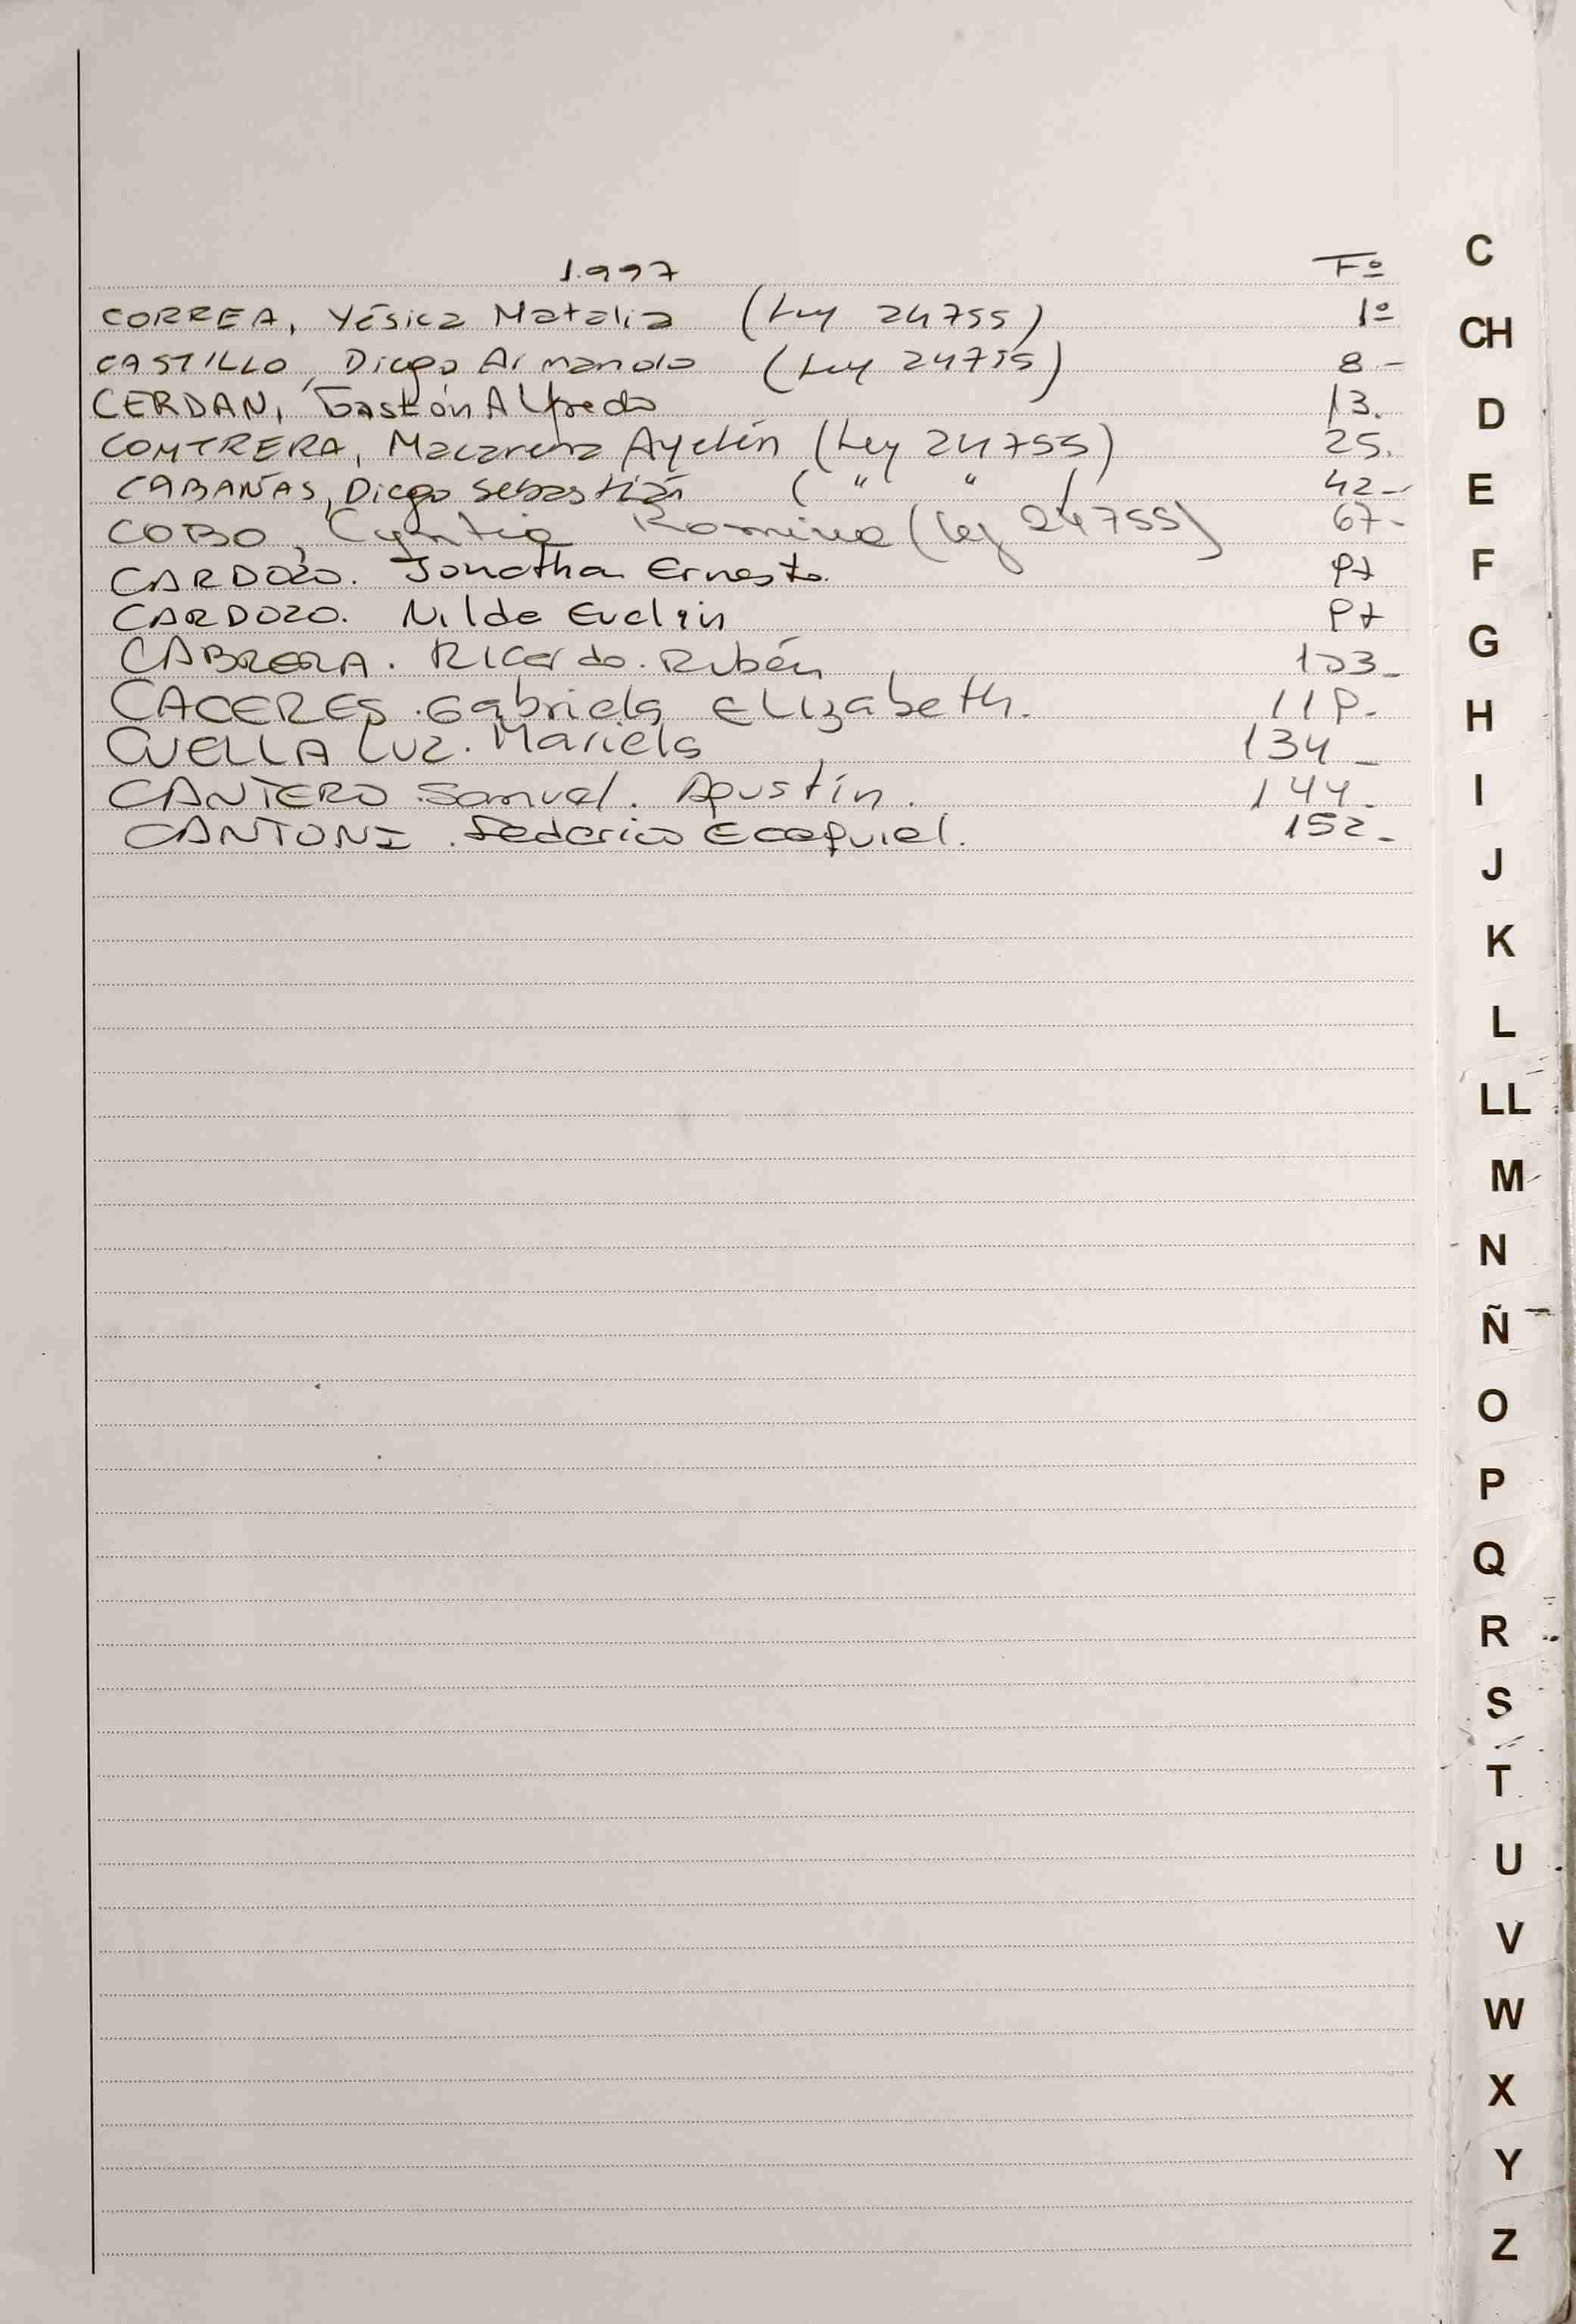 1.997 Fº
CORREA, Yésica Natalia (Ley 24755) 1º
CASTILLO, Diego Armando (Ley 24755) 8-
CERDAN, Gastón Alfredo 13.
CONTRERA, Macarena Ayelén (Ley 24755) 25.
CABAÑAS, Diego Sebastián ( " " ) 42-
COBO, Cyntia Romina (Ley 24755) 67-
CARDOZO. Jonathan Ernesto.
CARDOZO. Nilde Evelin
CABRERA. Ricardo. Rubén 103-
CACERES. Gabriela Elizabeth. 119.
CUELLA Luz. Mariela 134-
CANTERO Samuel. Agustín. 144-
CANTONI. Federico Ecequiel. 152-
C
CH
D
E
F
G
H
I
J
K
L
LL
M
N
Ñ
O
P
Q
R
S
T
U
V
W
X
Y
Z